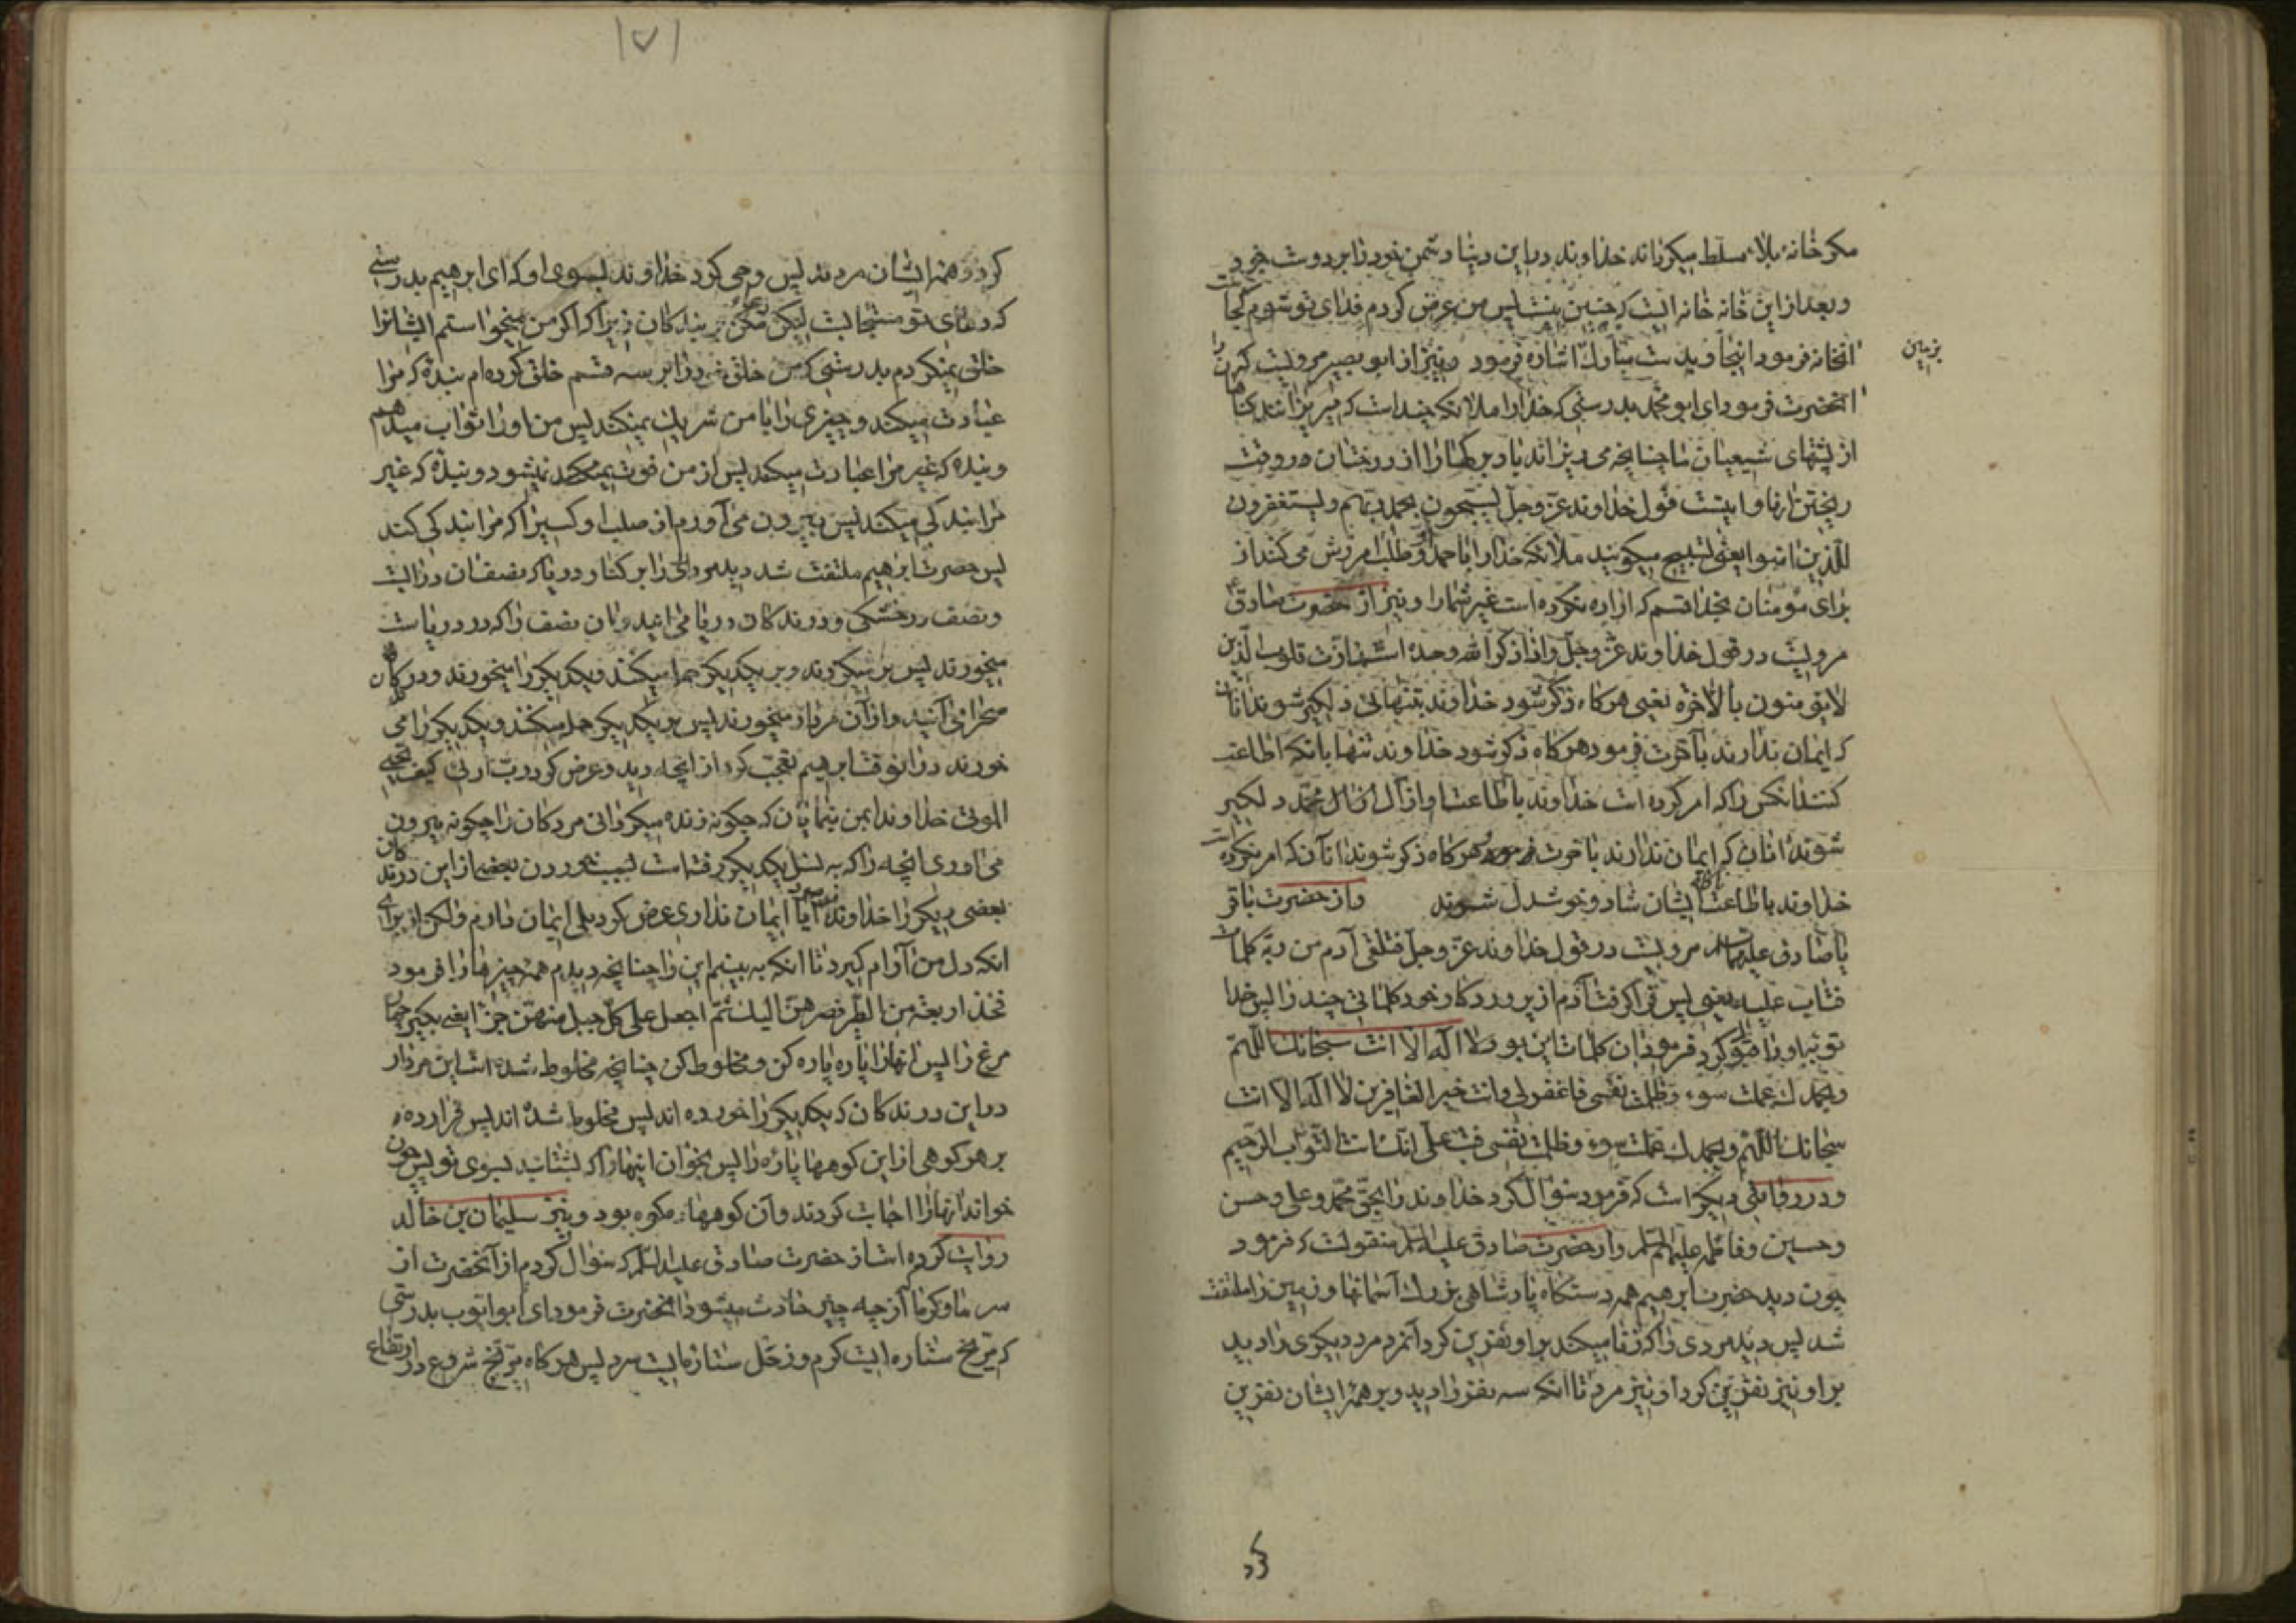 مکر خانهٔ بلاء مسلط میکرداند خداوند در این دنیا دشمن خود را بر دوست خود
و بعد از این خانه خانه ایست که چنین نیست پس من عرض کردم فدای تو شوم کجاست
انخانه فرمود اینجا و بدست مبارک اشاره فرمود و نیز از ابو بصیر مرویست که
بزمین
انحضرت فرمود ای ابو محمد بدرستی که خدا را ملائکه چند است که میریزانند کناهان را
از پشتهای شیعیان ما چنانچه می ریزاند باد برکها را از درختان در وقت
ریختن انها و اینست قول خداوند عز و جل یسبحون بحمد ربهم و یستغفرون
للذین امنوا یعنی تسبیح میکویند ملائکه خدا را با حمد او و طلب امرزش می کنند از
برای مؤمنان بخدا قسم که اراده نکرده است غیر شما را و نیز از حضرت صادق
مرویست در قول خداوند عز و جل و اذا ذکر الله وحده اشمازت قلوب الذین
لا یؤمنون بالاخره یعنی هرکاه ذکر شود خداوند بتنهائی دلکیر شوند انان
که ایمان ندارند بآخرت فرمود هرکاه ذکر شود خداوند تنها بانکه اطاعت
کنند انکس را که امر کرده است خداوند باطاعت او از آل محمد دلکیر
شوند انان که ایمان ندارند باخرت و هرکاه ذکر شوند انان که امر نکرده است
خداوند باطاعت ایشان شاد و خوشدل شوند و از حضرت باقر
یا صادق علیهما السلام مرویست در قول خداوند عز و جل فتلقی آدم من ربه کلمات
فتاب علیه یعنی پس فرا کرفت آدم از پروردکار خود کلماتی چند را پس خدا
توبه او را قبول کرد فرمود ان کلمات این بود لا اله الا انت سبحانک اللهم
و بحمدک عملت سوء و ظلمت نفسی فاغفرلی و انت خیر الغافرین لا اله الا انت
سبحانک اللهم و بحمدک عملت سوء و ظلمت نفسی فتب علی انک انت التواب الرحیم
و در روایتی دیکر است که فرمود سؤال کرد خداوند را بحق محمد و علی و حسن
و حسین و فاطمه علیهم السلام و از حضرت صادق علیه السلام منقولست که فرمود
چون دید حضرت ابرهیم همه دستکاه پادشاهی بزرک آسمانها و زمین را ملتفت
شد پس دید مردی را که زنا میکند بر او نفرین کرد آنمرد مرد دیکری را دید
بر او نیز نفرین کرد او نیز مرد تا انکه سه نفر را دید و بر همهٔ ایشان نفرین
کرد
۱۷۱
کرد و همهٔ ایشان مردند پس وحی کرد خداوند بسوی او که ای ابرهیم بدرستی
که دعای تو مستجابست لیکن مکن بر بندکان زیرا که اکر من میخواستم ایشانرا
خلق نمیکردم بدرستی که من خلق خود را بر سه قسم خلق کرده ام بندهٔ که مرا
عبادت میکند و چیزی را با من شریک نمیکند پس من او را ثواب میدهم
و بندهٔ که غیر مرا عبادت میکند پس از من فوت نمیشود و بندهٔ که غیر
مرا بندکی میکند پس بیرون می آورم از صلب او کسیرا که مرا بندکی کند
پس حضرت ابرهیم ملتفت شد دید مرداری را بر کنار دریا که نصف ان در ابست
و نصف در خشکی و درندکان دریا می ایند و ان نصف را که در دریاست
میخورند پس بر میکردند و بر یکدیکر حمله میکنند و یکدیکر را میخورند و درندکان
صحرا می آیند و از آن مردار میخورند پس بر یکدیکر حمله میکنند و یکدیکر را می
خورند در انوقت ابرهیم تعجب کرد از انچه دید و عرض کرد رب ارنی کیف تحیی
الموتی خداوندا بمن بنمایان که چکونه زنده میکردانی مردکان را چکونه بیرون
می اوری انچه را که به نسل یکدیکر رفته است بسبب خوردن بعضی از این درندکان
بعضی دیکر را خداوند فرمود آیا ایمان نداری عرض کرد بلی ایمان دارم ولکن از برای
انکه دل من آرام کیرد تا انکه به بینم این را چنانچه دیدم همه چیزها را فرمود
فخذ اربعة من الطیر فصرهن الیک ثم اجعل علی کل جبل منهن جزء یعنی بکیر چهار
مرغ را پس انها را پاره پاره کن و مخلوط کن چنانچه مخلوط شده است این مردار
در این درندکان که یکدیکر را خورده اند پس مخلوط شده اند پس قرار ده
بر هر کوهی از این کوهها پارهٔ را پس بخوان اینها را که بشتابند بسوی تو پس چون
خواند انها را اجابت کردند و آن کوهها ده کوه بود و نیز سلیمان بن خالد
روایت کرده است از حضرت صادق علیه السلام که سؤال کردم از آنحضرت از
سرما و کرما از چه چیز حادث میشود انحضرت فرمود ای ابو ایوب بدرستی
که مریخ ستاره ایست کرم و زحل ستاره ایست سرد پس هرکاه مریخ شروع در ارتفاع